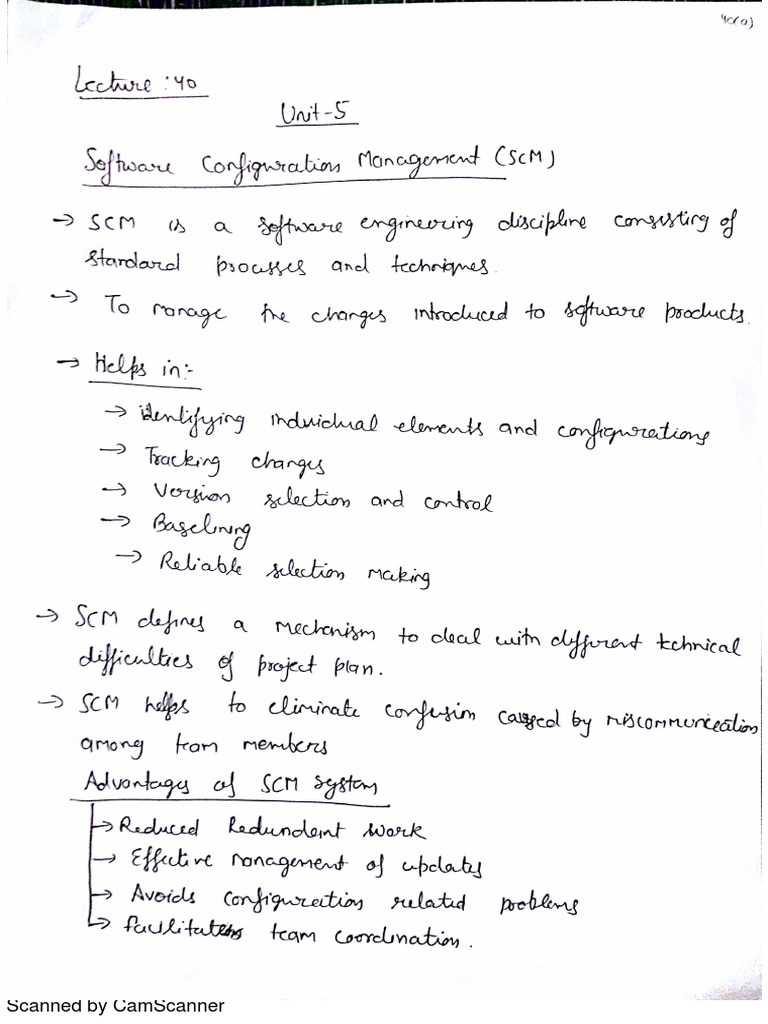 40(a)
Lecture : 40
Unit-5
Software Configuration Management (SCM)
→ SCM is a software engineering discipline consisting of
standard processes and techniques.
→ To manage the changes introduced to software products.
→ Helps in:-
→ identifying individual elements and configurations
→ Tracking changes
→ Version selection and control
→ Baselining
→ Reliable selection making
→ SCM defines a mechanism to deal with different technical
difficulties of project plan.
→ SCM helps to eliminate confusion caused by miscommunication
among team members
Advantages of SCM system
→ Reduced Redundant work
→ Effective management of updates
→ Avoids configuration related problems
→ facilitates team coordination.
Scanned by CamScanner